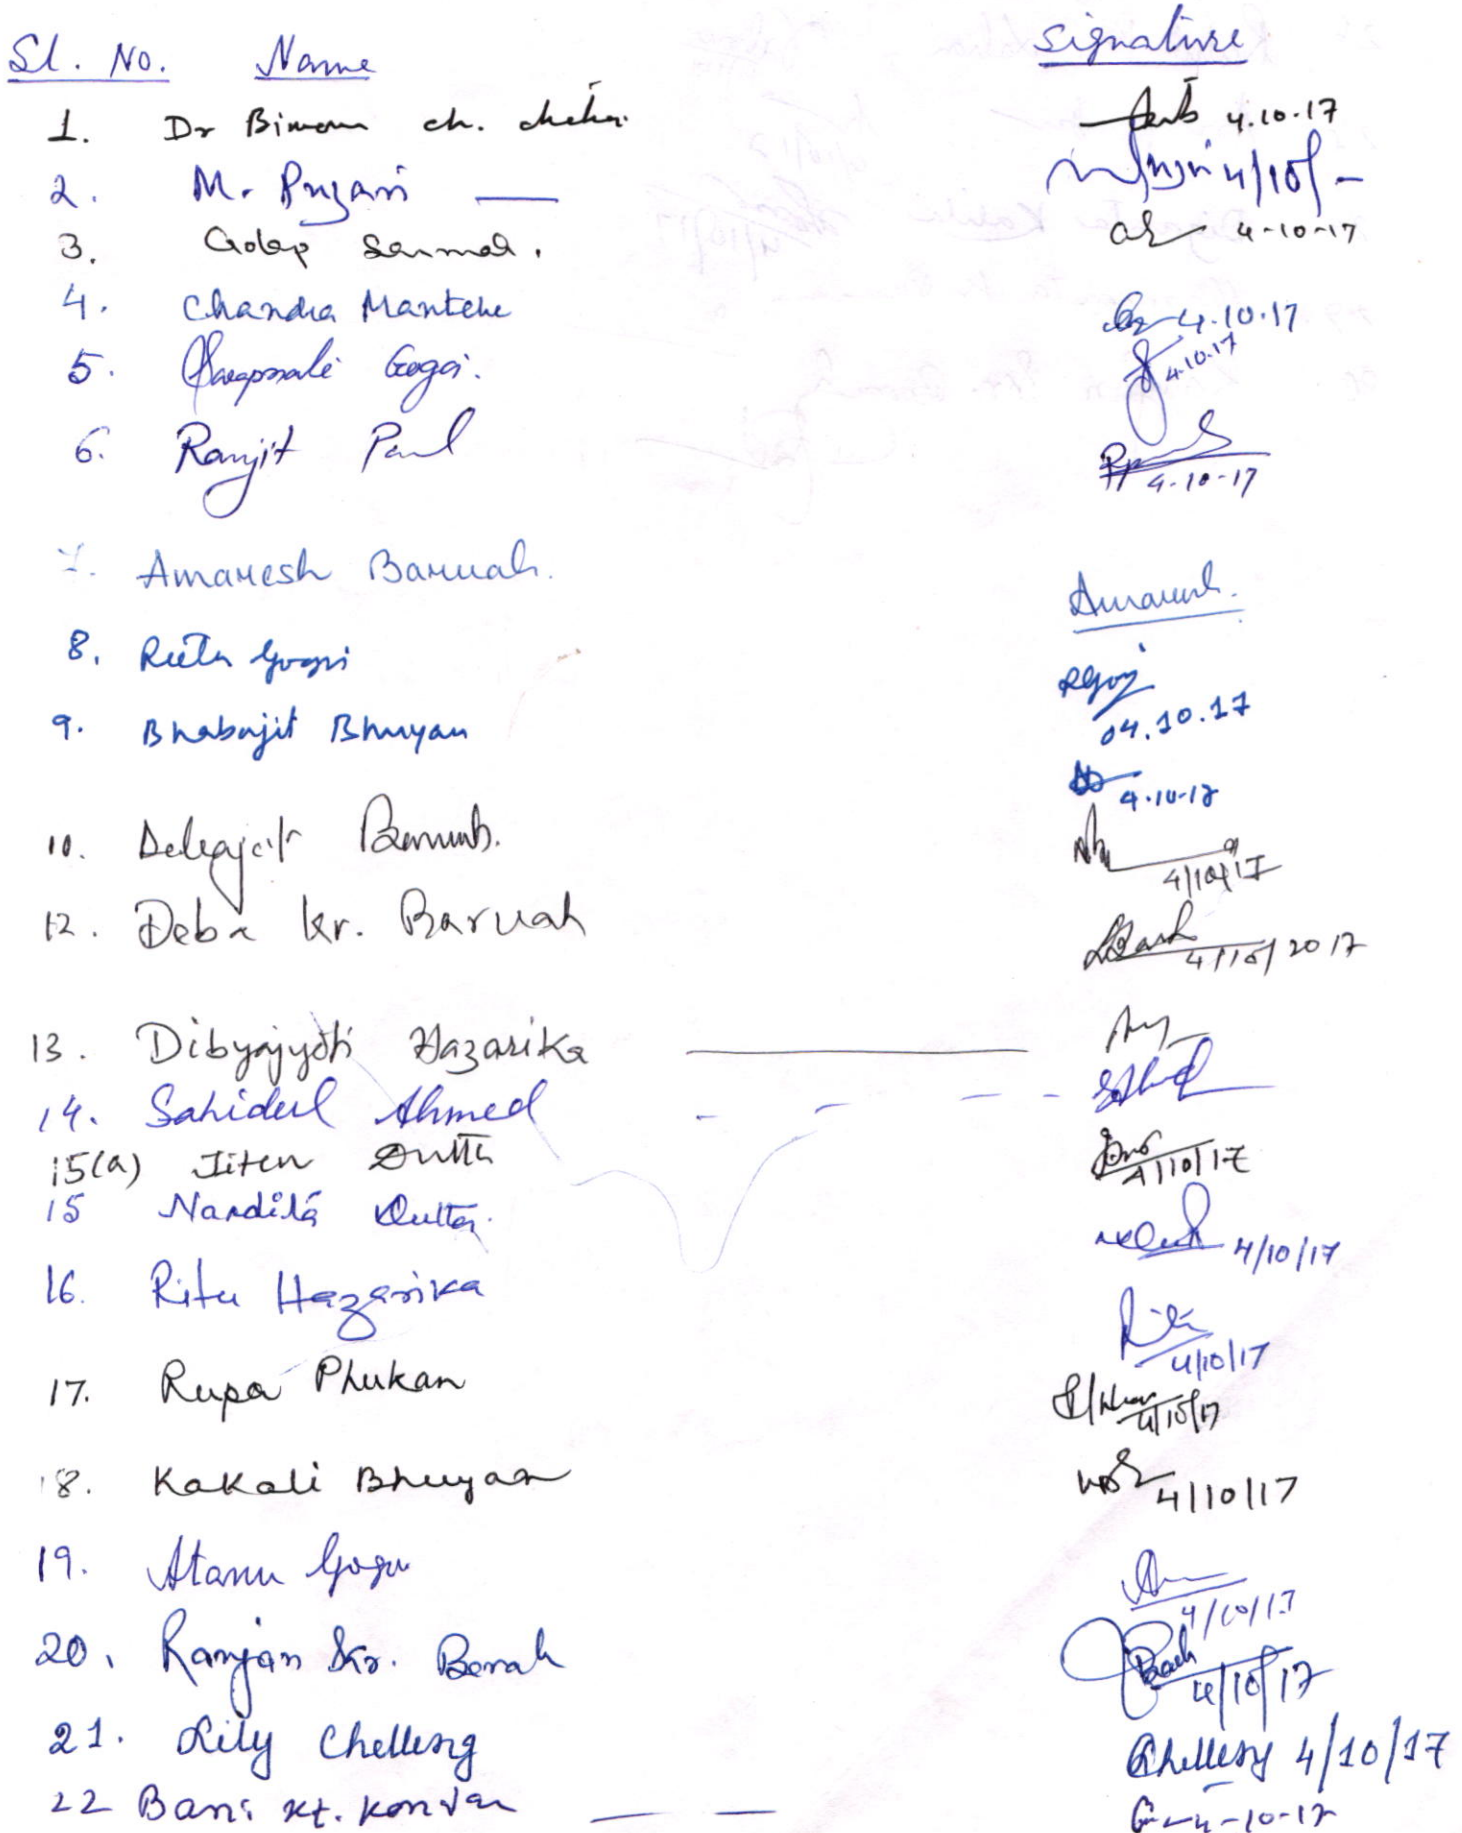 Sl. No. Name Signature
1. Dr Biman ch. chetia 4.10.17
2. M. Puzari 4/10/-
3. Golap Sarmah. 4-10-17
4. Chandra Manteke 4.10.17
5. Gogoi. 4.10.17
6. Ranjit Paul 4-10-17
7. Amaresh Baruah.
8. Rita Gogoi 04.10.17
9. Bhabajit Bhuyan 4.10.17
10. Debajit Baruah. 4/10/17
12. Deba kr. Baruah 4/10/2017
13. Dibyajyoti Hazarika
14. Sahidul Ahmed
15(a) Jiten Dutta 4/10/17
15 Nandita Dutta. 4/10/17
16. Ritu Hazarika 4/10/17
17. Rupa Phukan 4/10/17
18. Kakali Bhuyan 4/10/17
19. Atanu Gogoi 4/10/17
20. Ranjan Kr. Borah 4/10/17
21. Lily Chelleng Chelleng 4/10/17
22 Bani Kt. Konwar 4-10-17